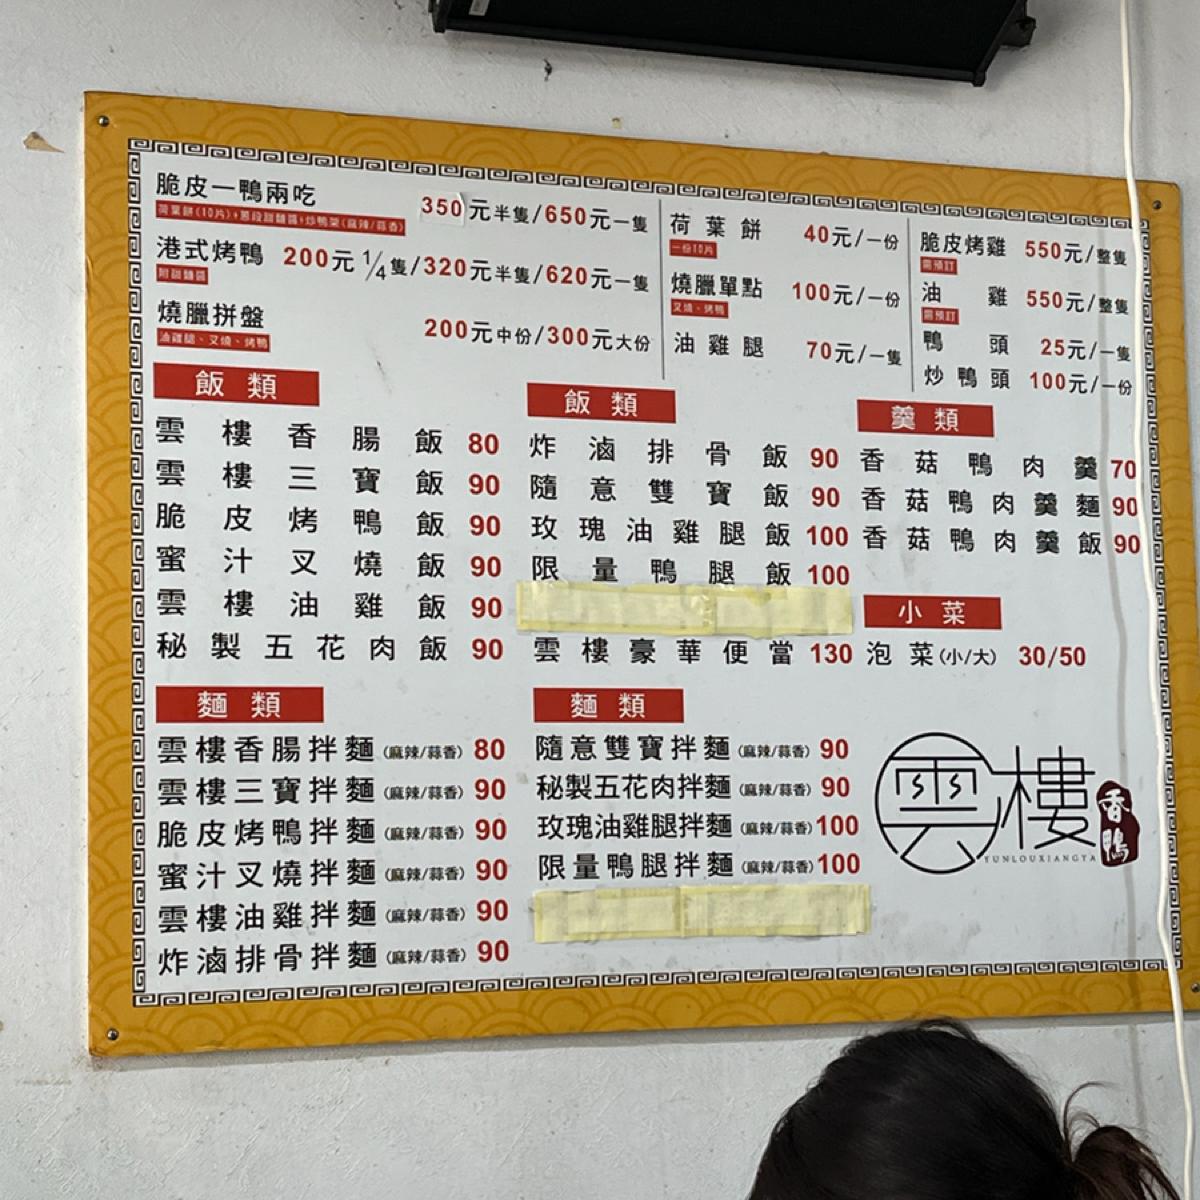 脆皮一鴨兩吃 350元半隻/650元一隻
荷葉餅(10片)+蔥段甜麵醬+炒鴨架(麻辣/蒜香)
港式烤鴨 200元 1/4隻/320元半隻/620元一隻
附甜麵醬
燒臘拼盤 200元中份/300元大份
油雞腿、叉燒、烤鴨
荷葉餅 40元/一份
一份10片
燒臘單點 100元/一份
叉燒、烤鴨
油雞腿 70元/一隻
脆皮烤雞 550元/整隻
需預訂
油雞 550元/整隻
需預訂
鴨頭 25元/一隻
炒鴨頭 100元/一份
飯類
雲樓香腸飯 80
雲樓三寶飯 90
脆皮烤鴨飯 90
蜜汁叉燒飯 90
雲樓油雞飯 90
秘製五花肉飯 90
飯類
炸滷排骨飯 90
隨意雙寶飯 90
玫瑰油雞腿飯 100
限量鴨腿飯 100
雲樓豪華便當 130
羹類
香菇鴨肉羹 70
香菇鴨肉羹麵 90
香菇鴨肉羹飯 90
小菜
泡菜(小/大) 30/50
麵類
雲樓香腸拌麵(麻辣/蒜香) 80
雲樓三寶拌麵(麻辣/蒜香) 90
脆皮烤鴨拌麵(麻辣/蒜香) 90
蜜汁叉燒拌麵(麻辣/蒜香) 90
雲樓油雞拌麵(麻辣/蒜香) 90
炸滷排骨拌麵(麻辣/蒜香) 90
麵類
隨意雙寶拌麵(麻辣/蒜香) 90
秘製五花肉拌麵(麻辣/蒜香) 90
玫瑰油雞腿拌麵(麻辣/蒜香) 100
限量鴨腿拌麵(麻辣/蒜香) 100
雲樓
香鴨
YUNLOUXIANGYA